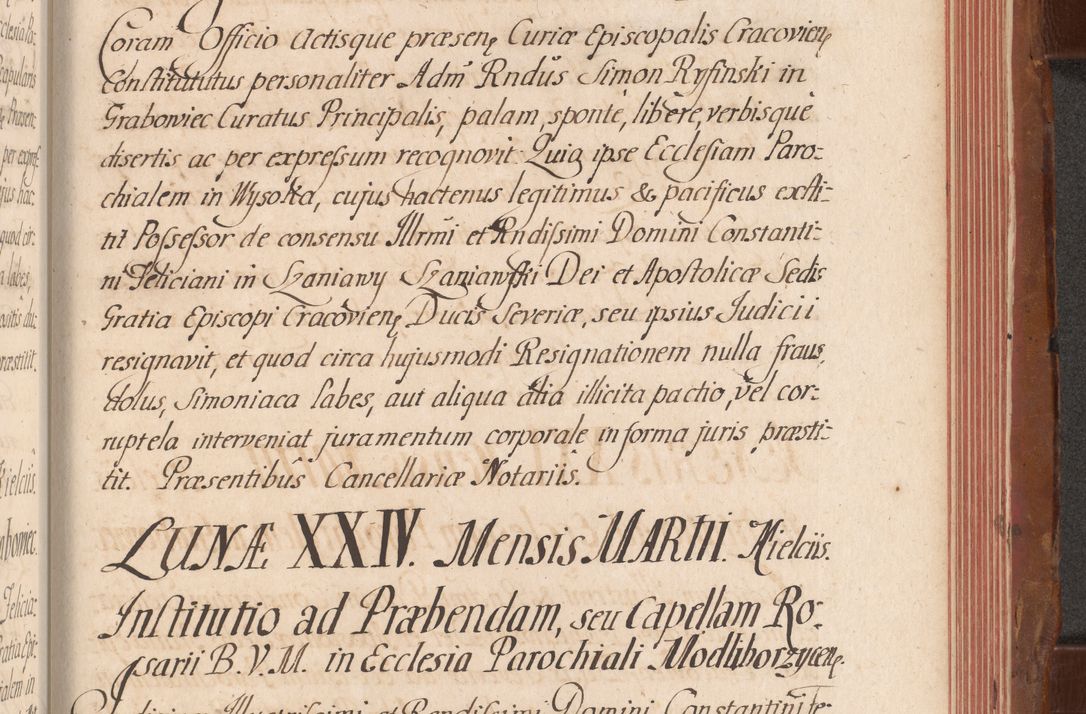 Coram Officio Actisque præsenę Curiæ Episcopalis Cracovienę
Constitututus personaliter Adm̃ Rndũs Simon Ryſinski in
Grabowiec Curatus Principalis, palam, sponte, libere, verbisque
disertis ac per expreſsum recognovit: Quia ipse Eccleſiam Paro:
chialem in Wysoka, cujus hactenus legitimus & pacificus exſti:
tit Poſseſsor de consensu Illrm̃i et Rndiſsimi Domini Constanti:
ni Feliciani in Szaniawy Szaniawſki Dei et Apoſtolicæ Sedis
Gratia Episcopi Cracovienę Ducis Severiæ, seu ipsius Judicii
resignavit, et quod circa hujusmodi Resignationem nulla fraus,
dolus, Simoniaca labes, aut aliqua alia illicita pactio, vel cor:
ruptela interveniat juramentum corporale in forma juris præsti:
tit. Præsentibûs Cancellariæ Notariis.
LUNÆ XXIV. Mensis MARTII. Kielciis.
Inſtitutio ad Præbendam, seu Capellam Ro:
sarii B. V. M. in Ecclesia Parochiali Modliborzycenę.
Illustrissimi et Rendiſsimi Domini Constantini Fe: